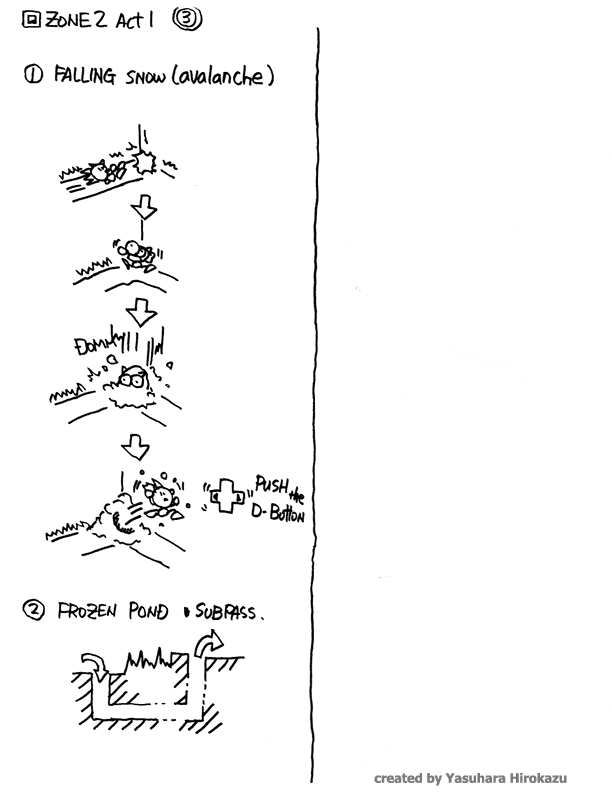 ZONE 2 Act 1 ③
① FALLING SNOW (avalanche)
PUSH the
D-BUTTON
② FROZEN POND • SUBPASS.
created by Yasuhara Hirokazu